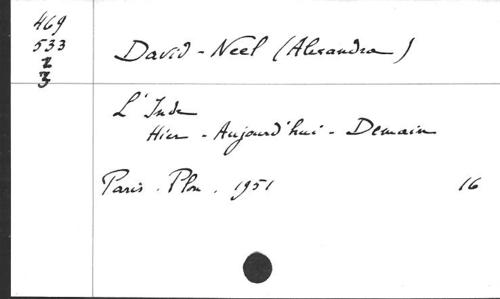 469
533
2
3
David-Neel (Alexandra)
L'Inde
Hier - Aujourd'hui - Demain
Paris. Plon. 1951 16